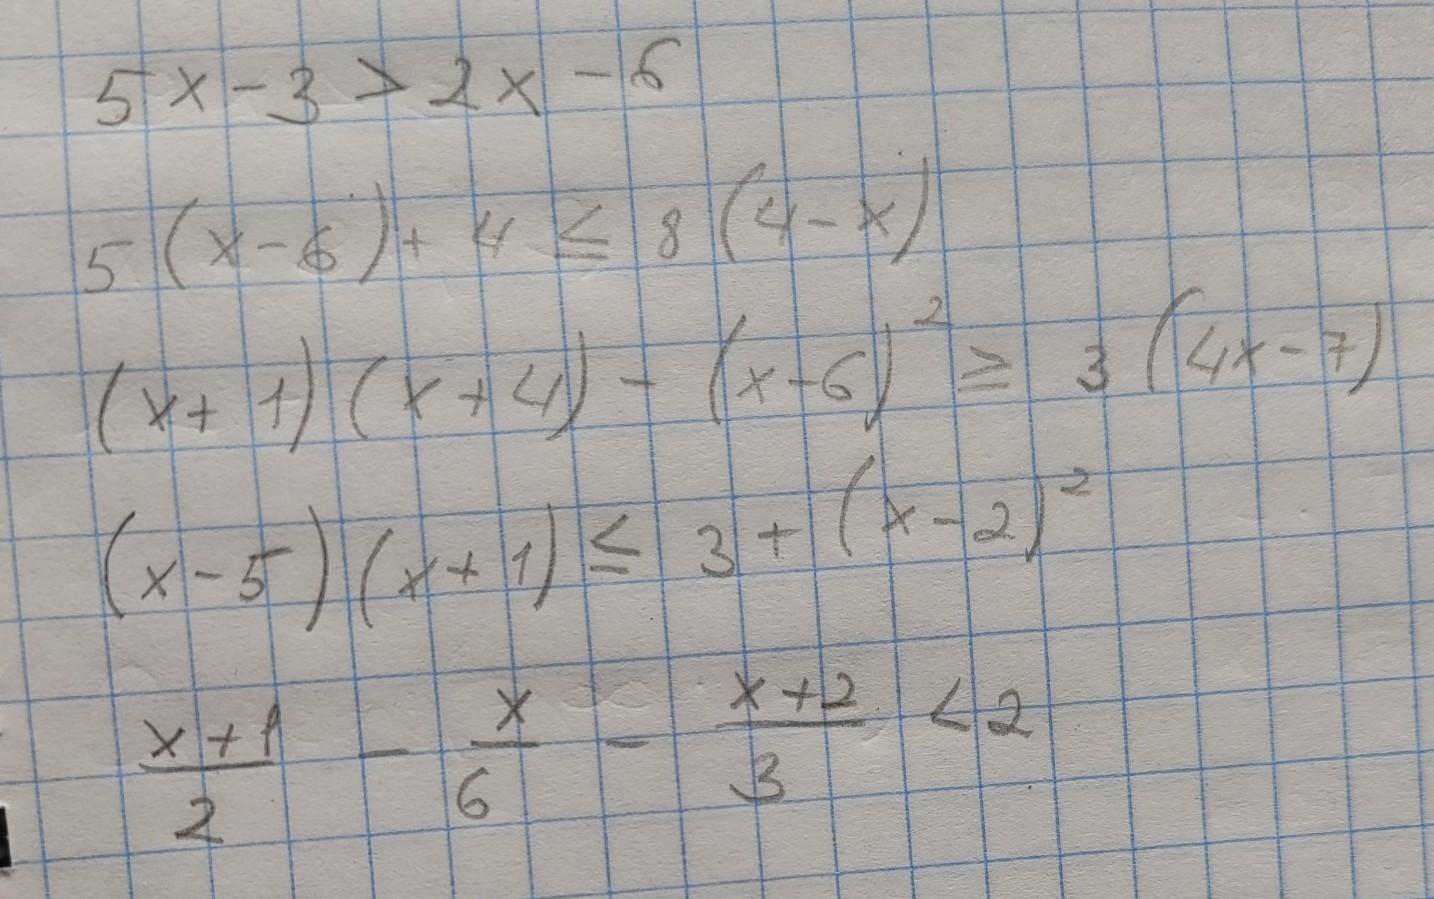 5x - 3 > 2x - 6
5(x - 6) + 4 ≤ 8(4 - x)
(x + 1)(x + 4) - (x - 6)² ≥ 3(4x - 7)
(x - 5)(x + 1) ≤ 3 + (x - 2)²
(x + 1)/2 - x/6 - (x + 2)/3 < 2